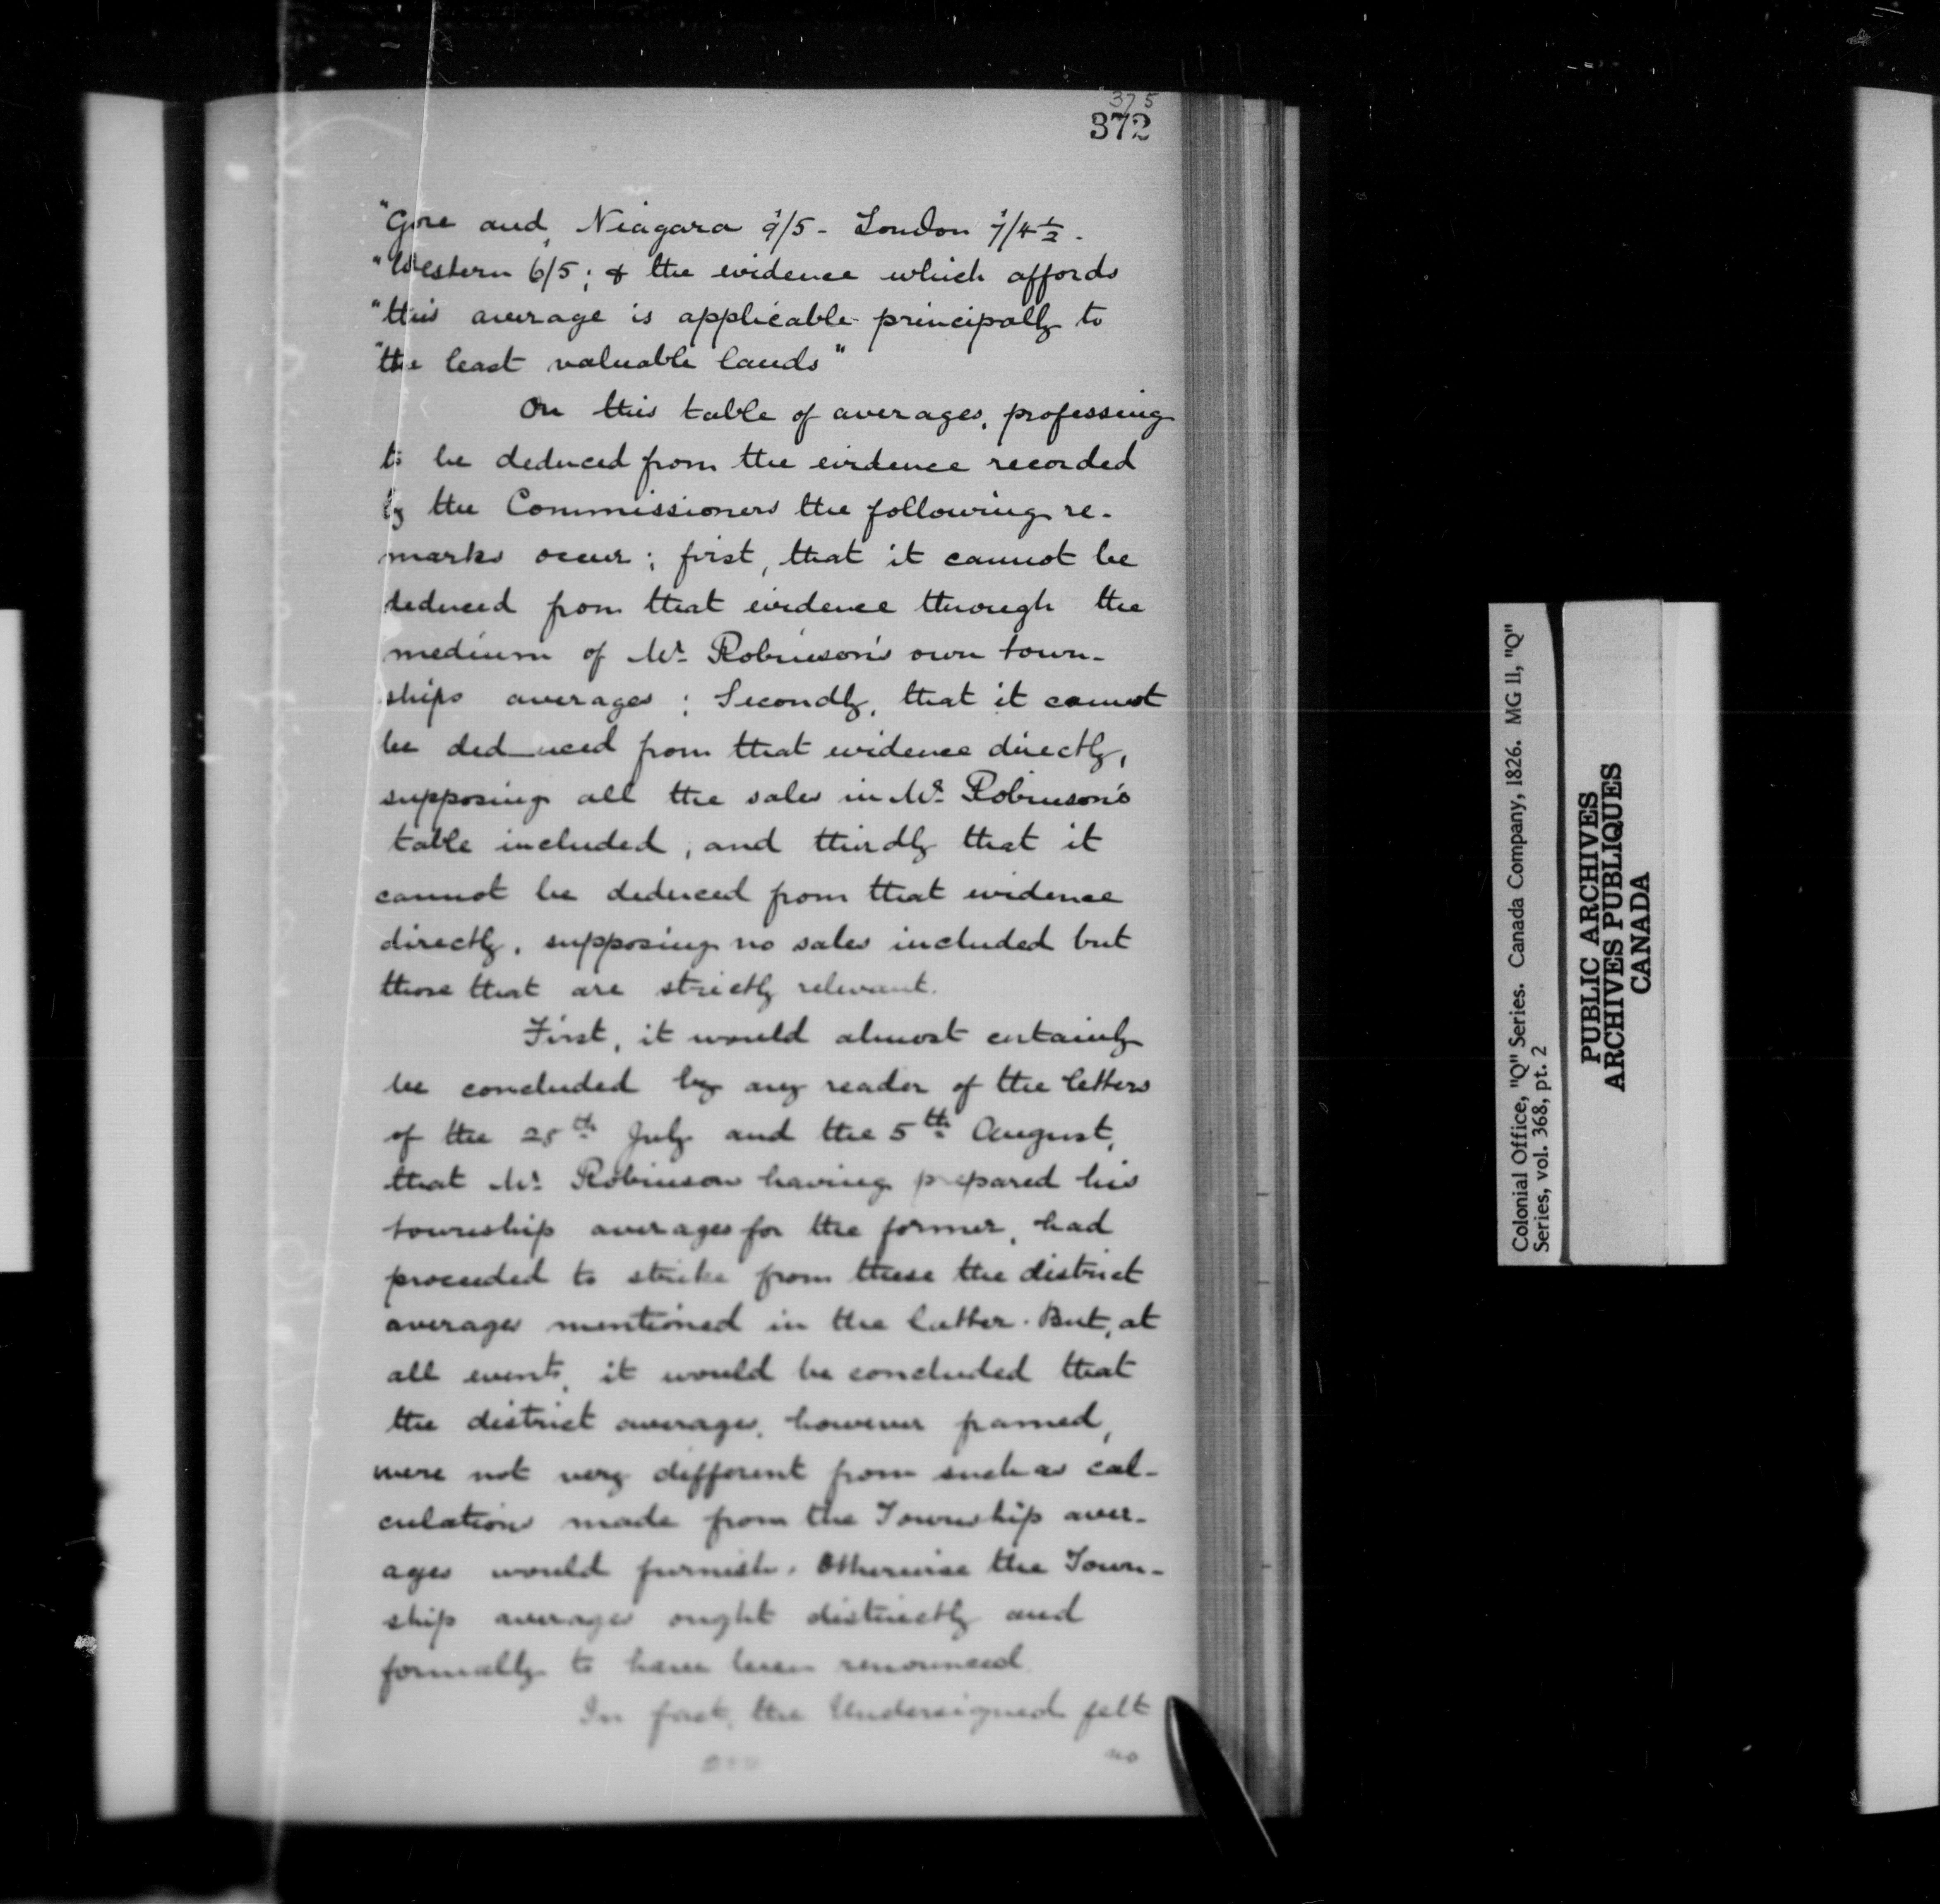 375
372
"Gore and, Niagara 9/5 - London 7/4½.
"Western 6/5; & the evidence which affords
"this average is applicable principally to
"the least valuable lands"
On this table of averages, professing
to be deduced from the evidence recorded
by the Commissioners the following re-
marks occur; first, that it cannot be
deduced from that evidence through the
medium of Mr. Robinson's own town-
ships averages; Secondly, that it cannot
be ded_uced from that evidence directly,
supposing all the sales in Mr. Robinson's
table included, and thirdly that it
cannot be deduced from that evidence
directly, supposing no sales included but
those that are strictly relevant.
First, it would almost certainly
be concluded by any reader of the letters
of the 25th July and the 5th August,
that Mr. Robinson having prepared his
township averages for the former, had
proceeded to strike from these the district
averages mentioned in the latter. But, at
all events, it would be concluded that
the district averages, however framed,
were not very different from such as cal-
culations made from the Township aver-
ages would furnish. Otherwise the Town-
ship averages ought distinctly and
formally to have been renounced.
In fact, the Undersigned felt
no
Colonial Office, "Q" Series. Canada Company, 1826. MG 11, "Q"
Series, vol. 368, pt. 2
PUBLIC ARCHIVES
ARCHIVES PUBLIQUES
CANADA